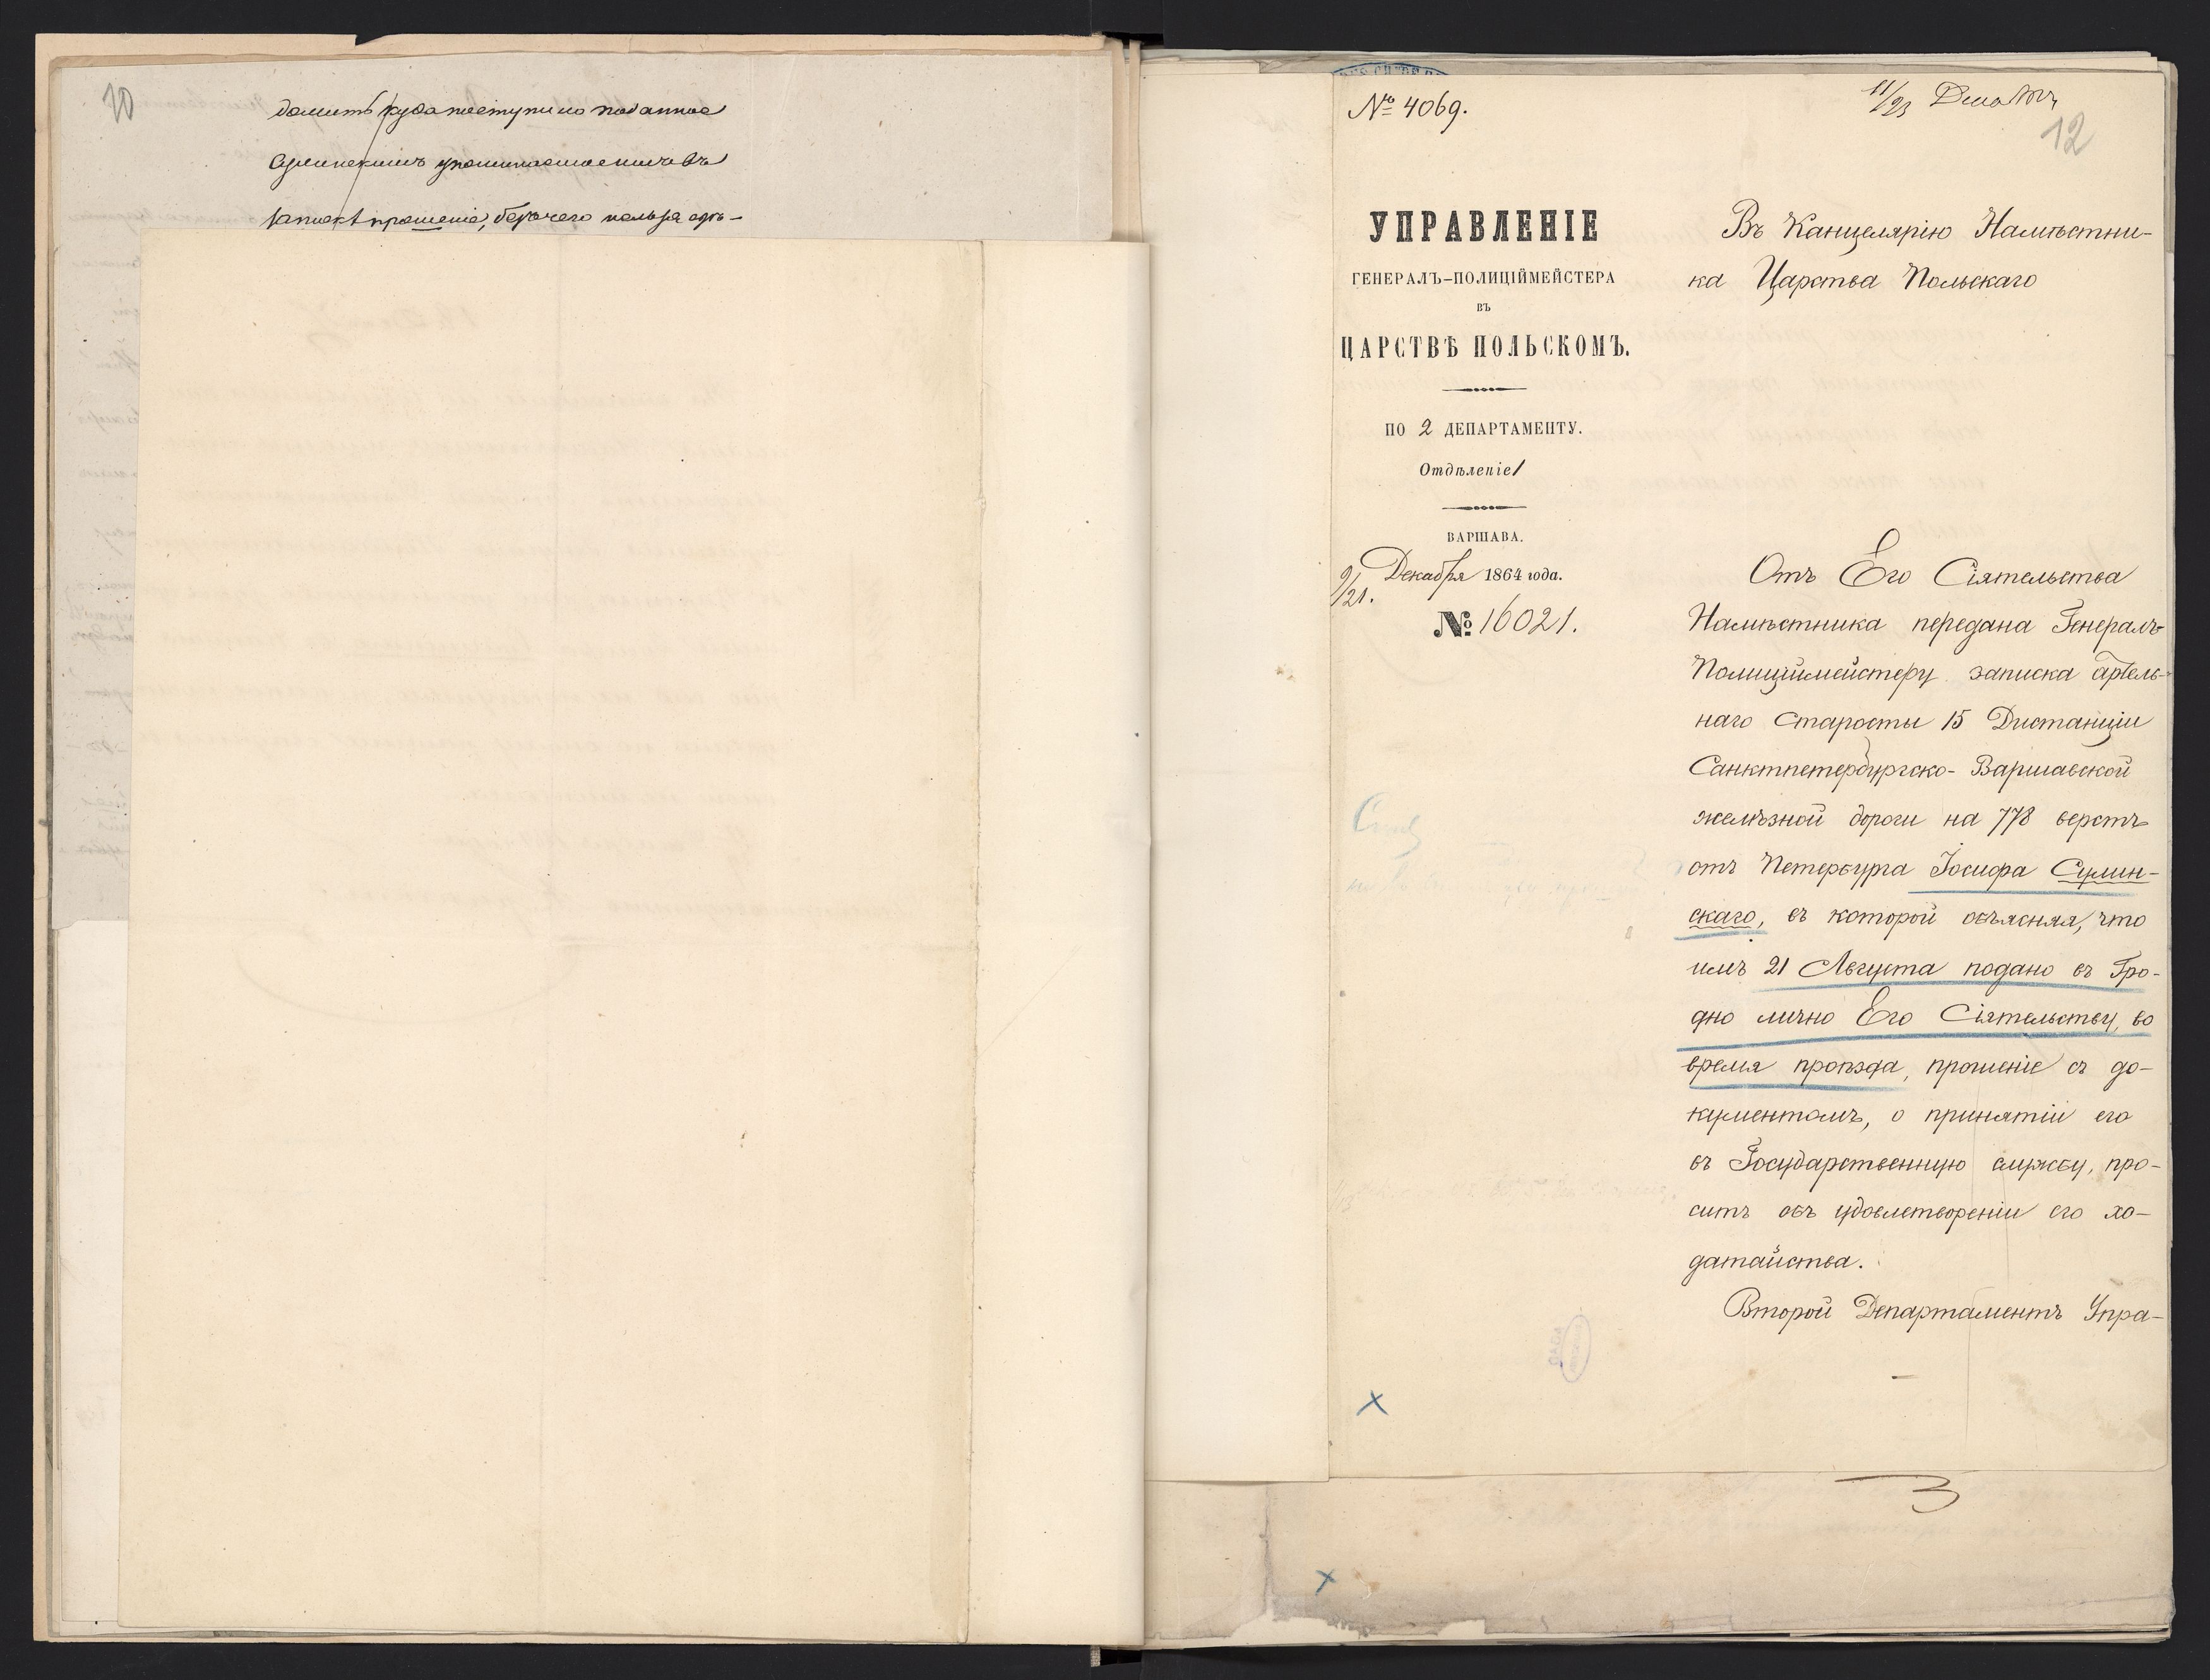 10
домить куда поступило поданное
Сулинскимъ упоминаемое имъ въ
запискѣ прошеніе, безъ чего нельзя
№ 4069.
11/23 Декабря
12
УПРАВЛЕНІЕ
ГЕНЕРАЛЪ-ПОЛИЦІЙМЕЙСТЕРА
ВЪ
ЦАРСТВѢ ПОЛЬСКОМЪ.
ПО 2 ДЕПАРТАМЕНТУ.
Отдѣленіе 1
ВАРШАВА.
9/21. Декабря 1864 года.
№ 16021.
Въ Канцелярію Намѣстни-
ка Царства Польскаго
Отъ Его Сіятельства
Намѣстника передана Генералъ-
Полиціймейстеру записка артель-
наго старосты 15 Дистанціи
Санктпетербургско-Варшавской
желѣзной дороги на 778 верстѣ
отъ Петербурга Іосифа Сулин-
скаго, въ которой объясняя, что
имъ 21 Августа подано въ Гро-
дно лично Его Сіятельству, во
время проѣзда, прошеніе съ до-
кументомъ, о принятіи его
въ Государственную службу, про-
ситъ объ удовлетвореніи его хо-
датайства.
Второй Департаментъ Упра-